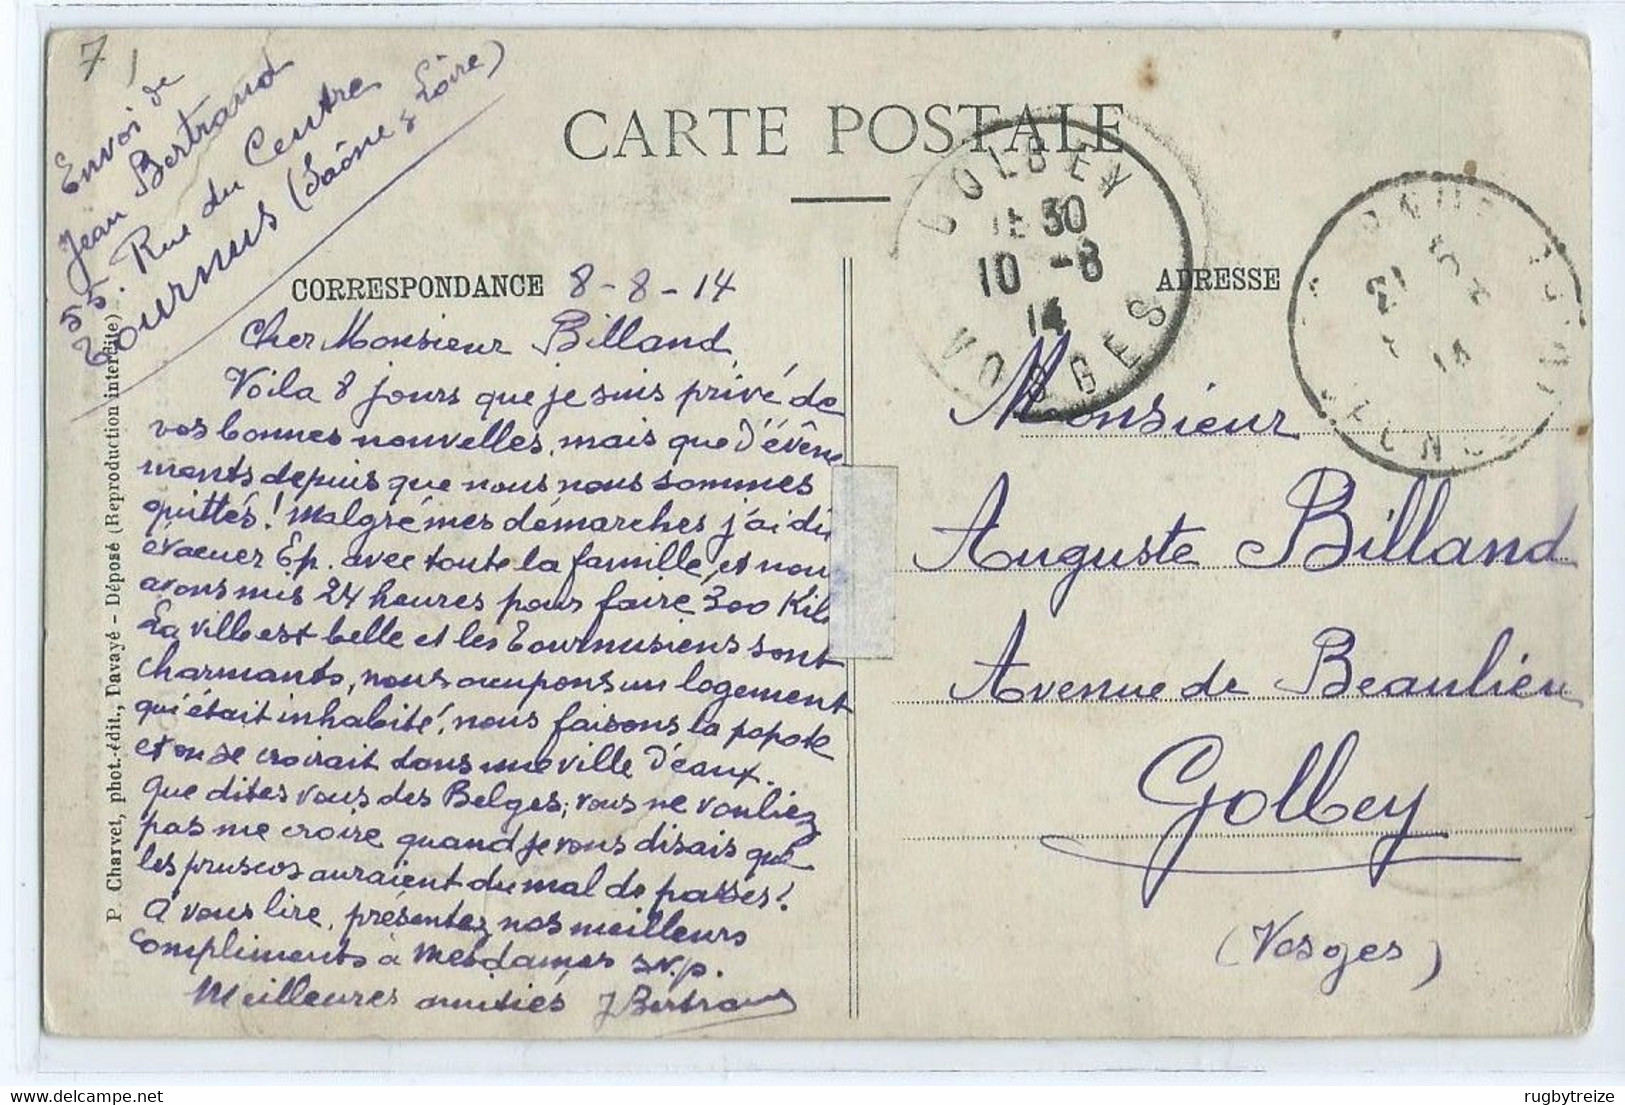 7
Envoi de
Jean Bertrand
55. Rue du Centre
Tournus (Saône & Loire)
CARTE POSTALE
CORRESPONDANCE 8-8-14
ADRESSE
GOLBEY
15 30
10 -8
14
VOSGES
14
Cher Monsieur Billand,
Voila 8 jours que je suis privé de
vos bonnes nouvelles, mais que d'évène
ments depuis que nous nous sommes
quittés! Malgré mes démarches j'ai dû
évacuer Ep. avec toute la famille, et nous
avons mis 24 heures pour faire 300 Kil.
La ville est belle et les Tournusiens sont
charmants, nous occupons un logement
qui était inhabité, nous faisons la popote
et on se croirait dans une ville d'eaux.
Que dites vous des Belges; vous ne vouliez
pas me croire quand je vous disais que
les pruscos auraient du mal de passer!
A vous lire, présentez nos meilleurs
compliments à Mesdames s.v.p.
Meilleures amitiés J Bertrand
Monsieur
Auguste Billand
Avenue de Beaulieu
Golbey
(Vosges)
P. Charvet, phot.-édit., Davayé - Déposé (Reproduction interdite)
rugbytreize